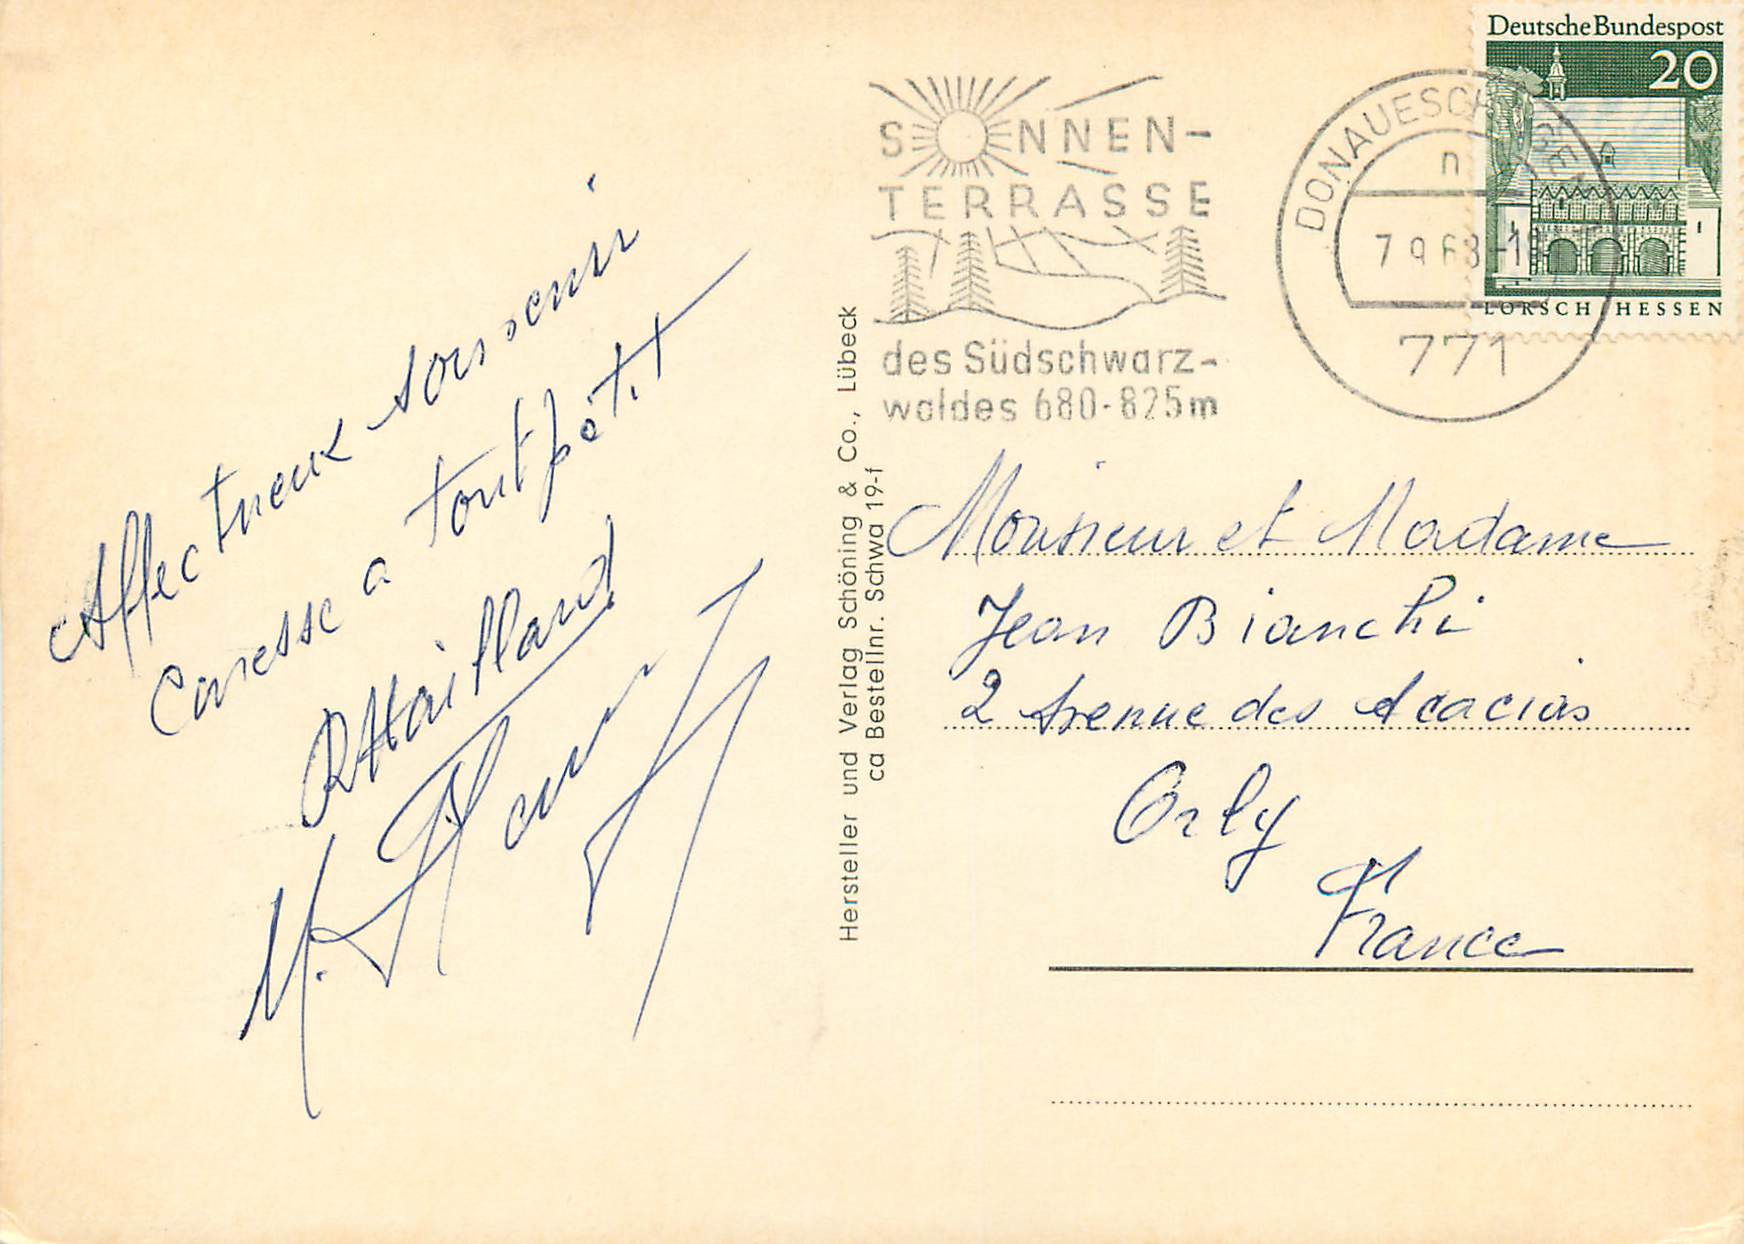 Affectueux souvenir
Caresse a toutpetit
RMaillard
M.
Hersteller und Verlag Schöning & Co., Lübeck
ca Bestellnr. Schwa 19-f
SONNEN-
TERRASSE
des Südschwarz-
waldes 680-825m
DONAUESCHINGEN
n
7.9.68-18
771
Deutsche Bundespost
20
LORSCH/HESSEN
Monsieur et Madame
Jean Bianchi
2 Avenue des Acacias
Orly
France